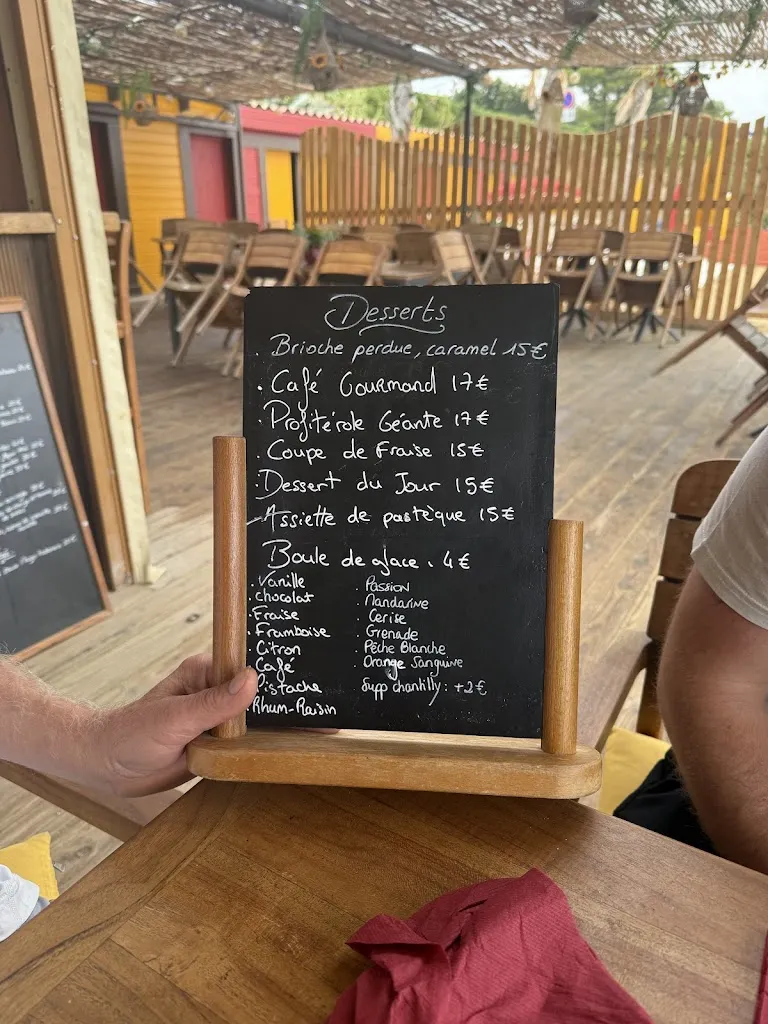 Desserts
. Brioche perdue, caramel 15€
. Café Gourmand 17€
. Profitérole Géante 17€
. Coupe de Fraise 15€
. Dessert du Jour 15€
- Assiette de pastèque 15€
Boule de glace . 4€
. Vanille
. chocolat
. Fraise
. Framboise
. Citron
. Café
. Pistache
. Rhum-Raisin
. Passion
. Mandarine
. Cerise
. Grenade
. Pêche Blanche
. Orange Sanguine
Supp chantilly : +2€